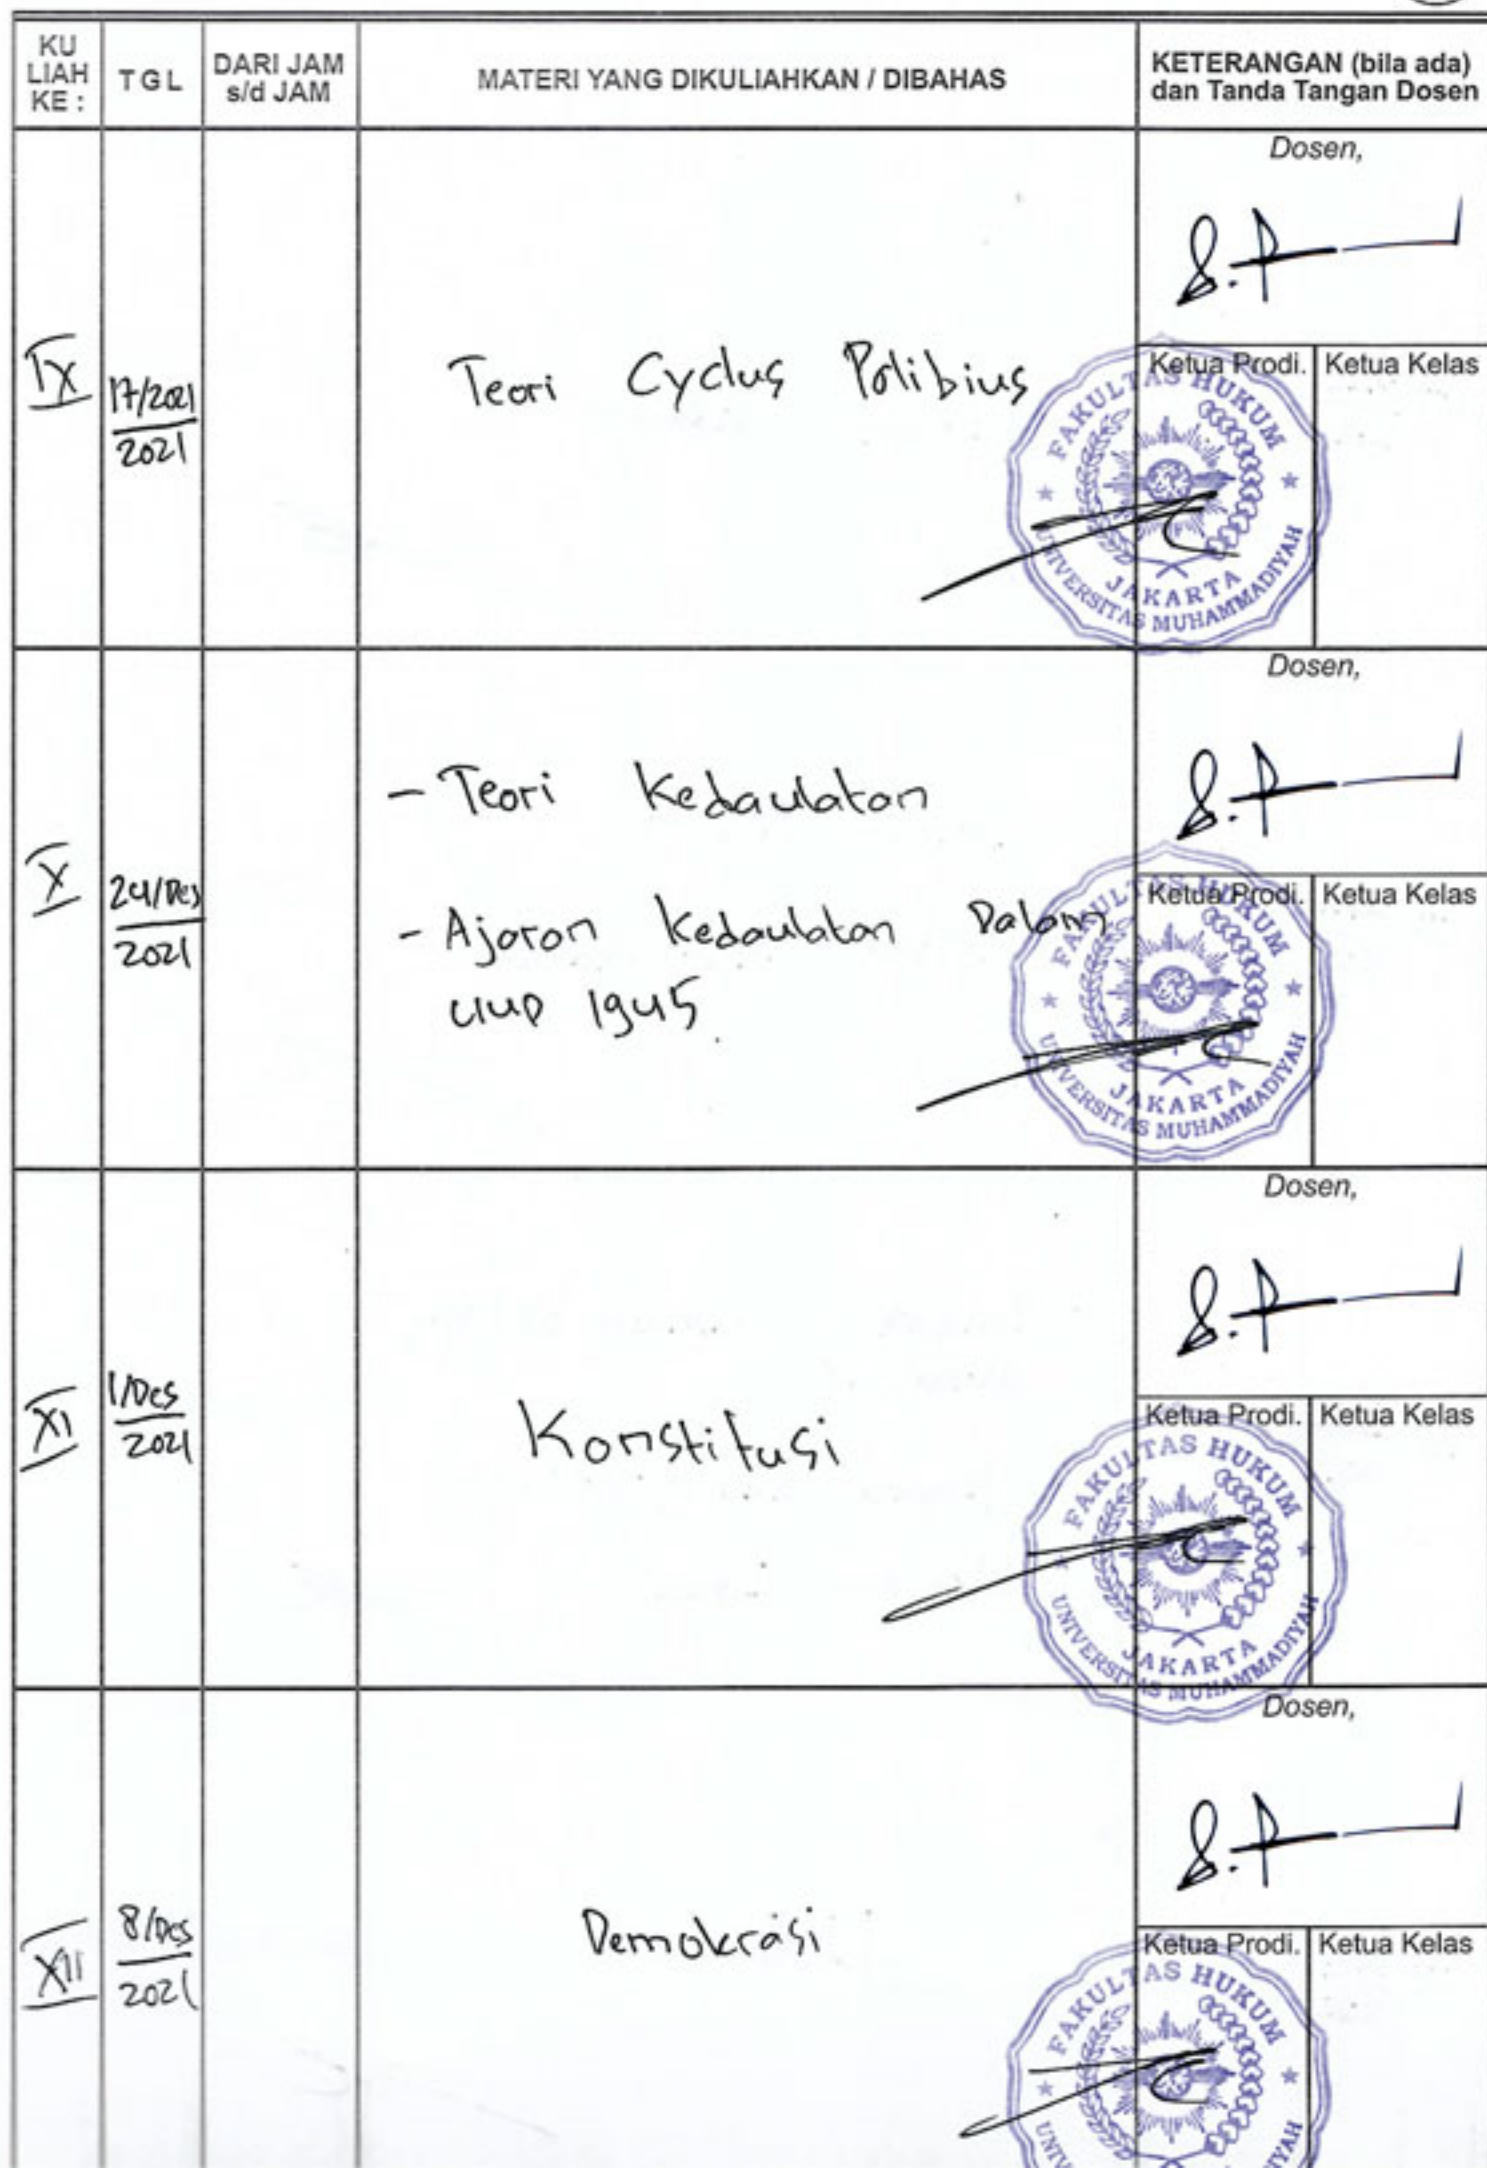 KU
LIAH
KE :
TGL
DARI JAM
s/d JAM
MATERI YANG DIKULIAHKAN / DIBAHAS
KETERANGAN (bila ada)
dan Tanda Tangan Dosen
Dosen,
IX
17/2021
2021
Teori Cyclus Polibius
Ketua Prodi.
Ketua Kelas
FAKULTAS HUKUM
JAKARTA
UNIVERSITAS MUHAMMADIYAH
Dosen,
X
24/Des
2021
- Teori Kedaulatan
- Ajaran Kedaulatan Dalam
UUD 1945
Ketua Prodi.
Ketua Kelas
FAKULTAS HUKUM
JAKARTA
UNIVERSITAS MUHAMMADIYAH
Dosen,
XI
1/Des
2021
Konstitusi
Ketua Prodi.
Ketua Kelas
FAKULTAS HUKUM
JAKARTA
UNIVERSITAS MUHAMMADIYAH
Dosen,
XII
8/Des
2021
Demokrasi
Ketua Prodi.
Ketua Kelas
FAKULTAS HUKUM